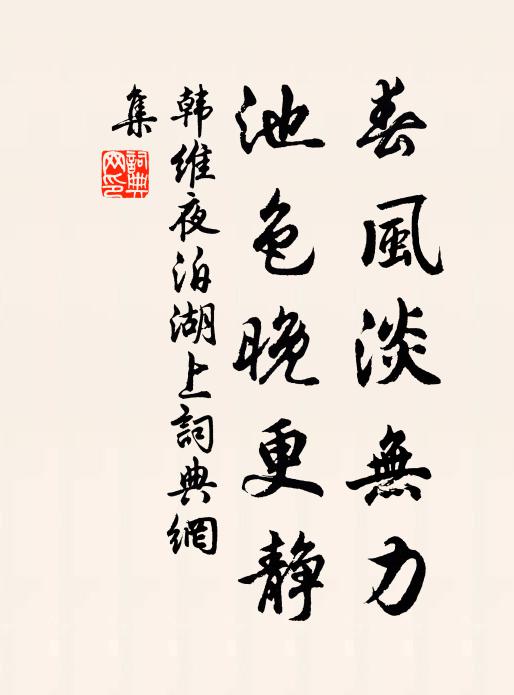 春風淡無力
池色晚更静
韩維夜泊湖上詞典網
集
詞典
网印